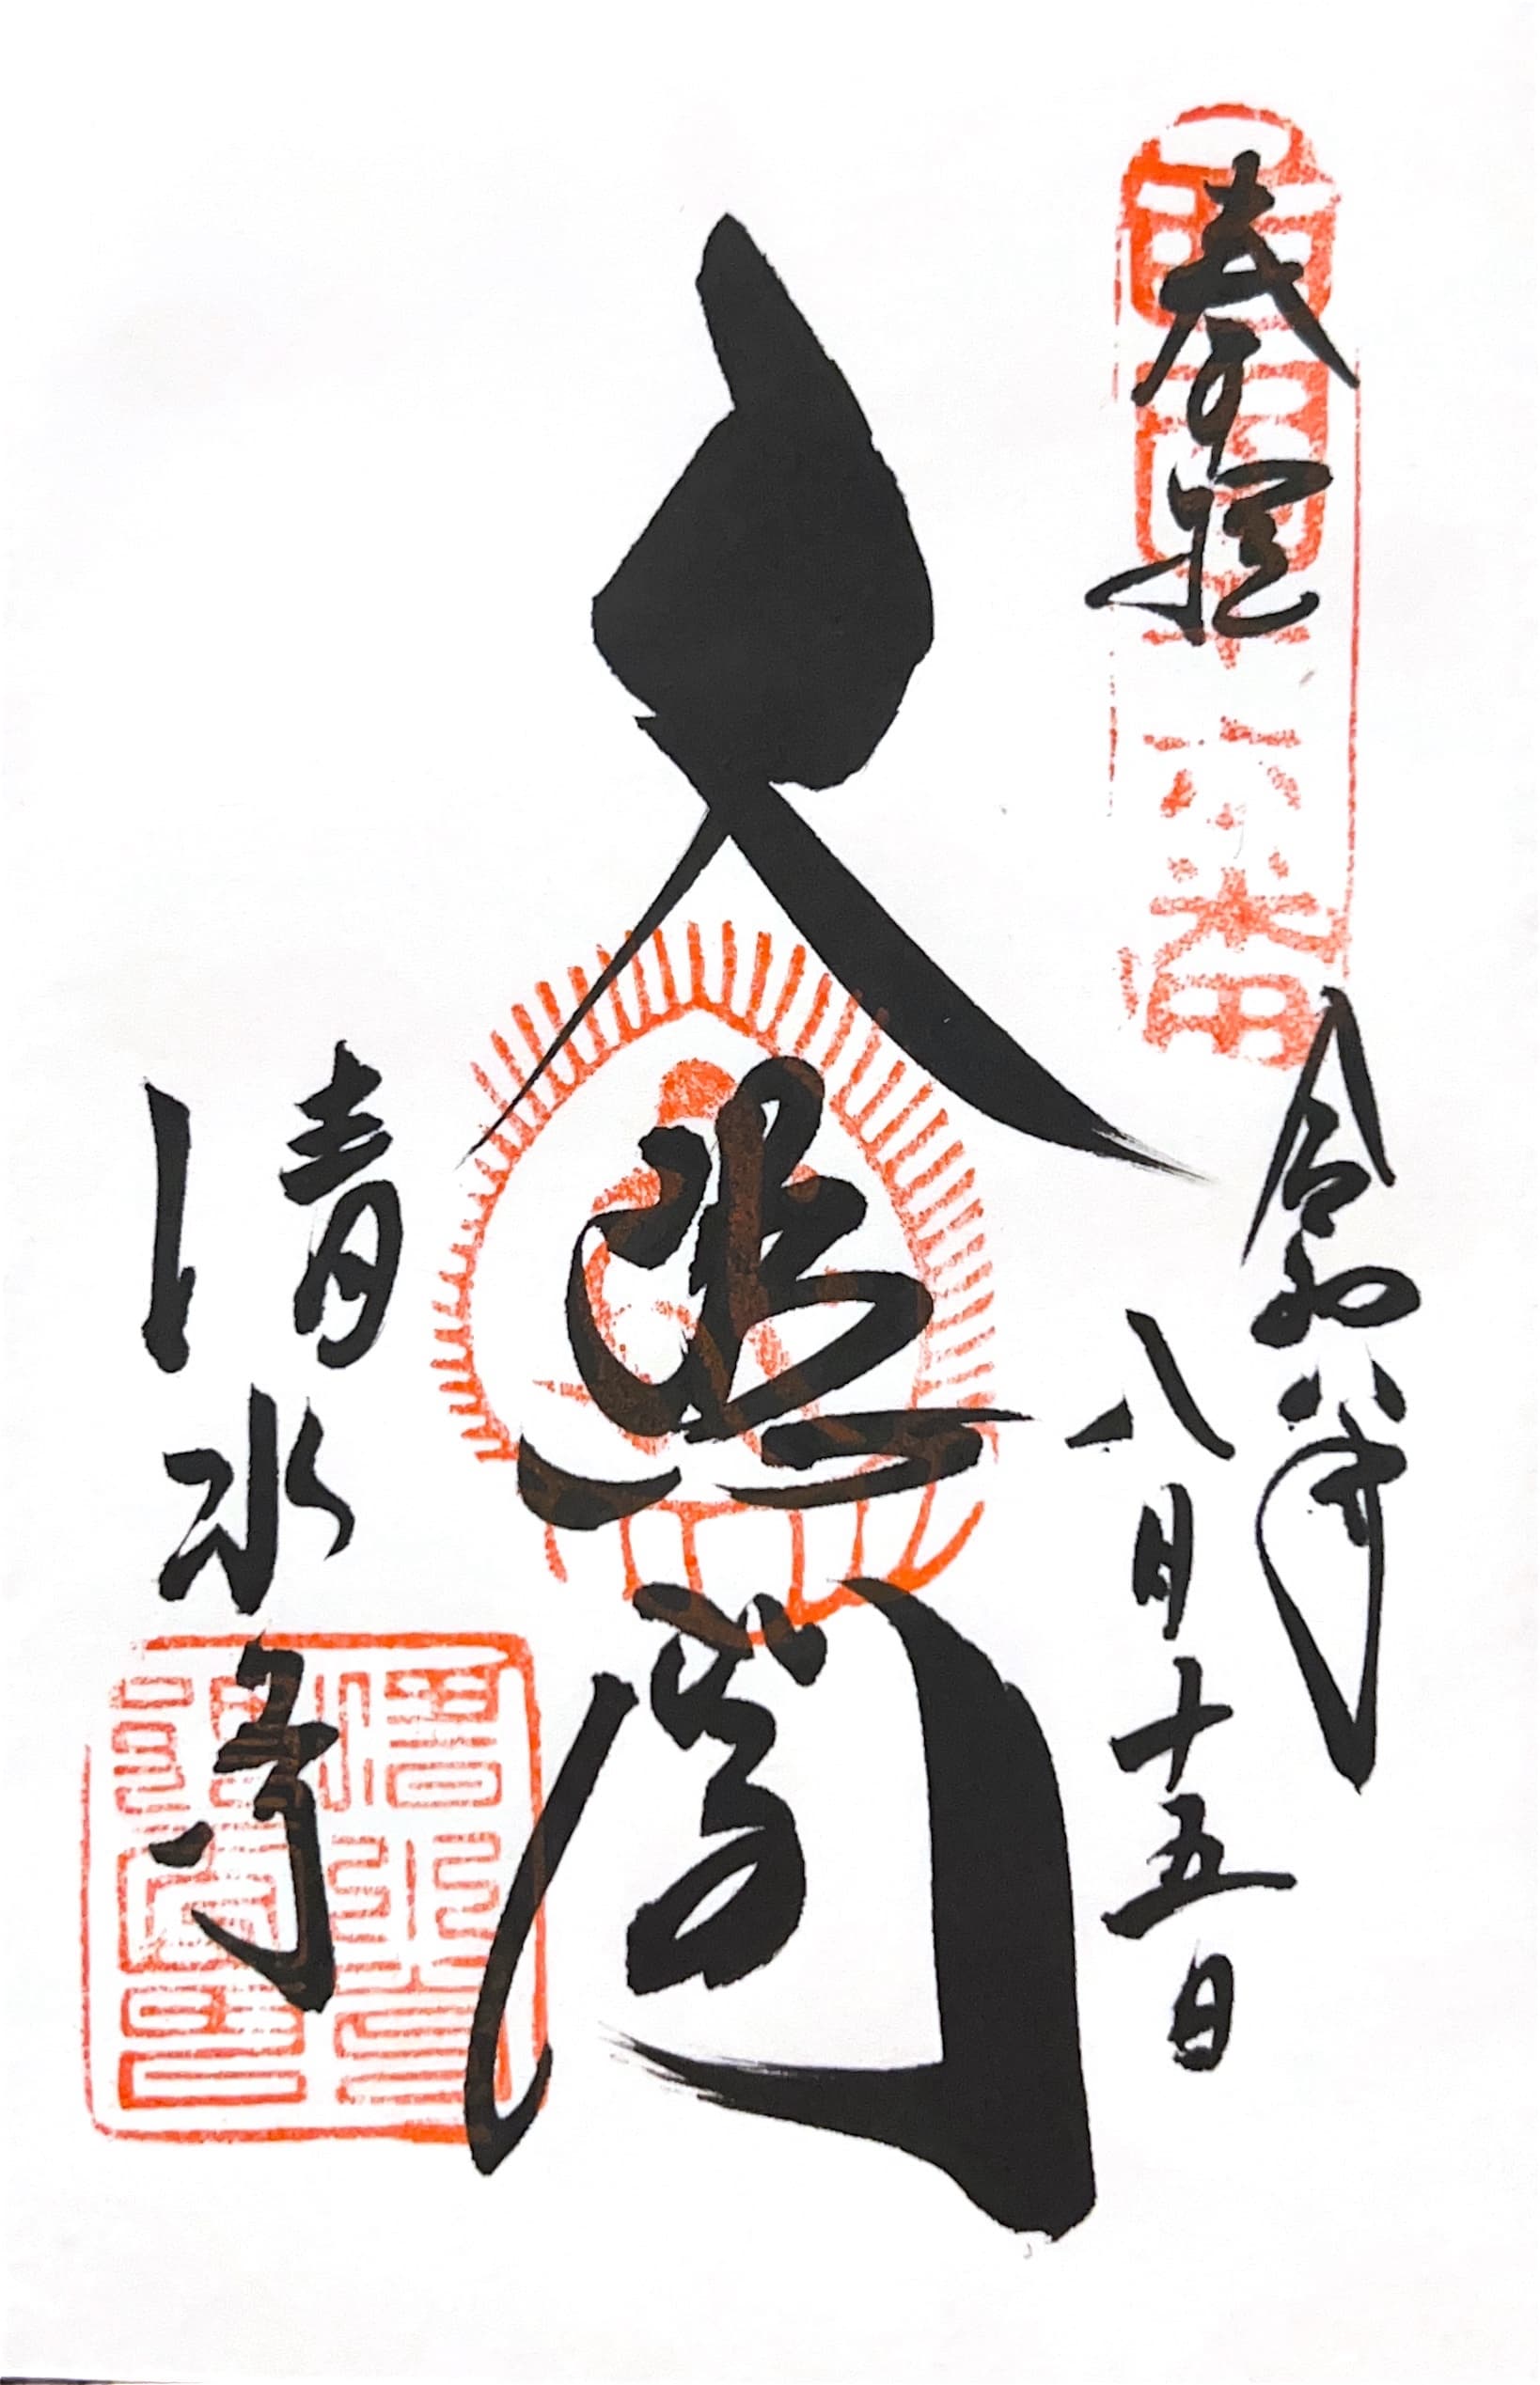 西國十六番
奉拝
令和八年
八月十五日
大悲閣
清水寺